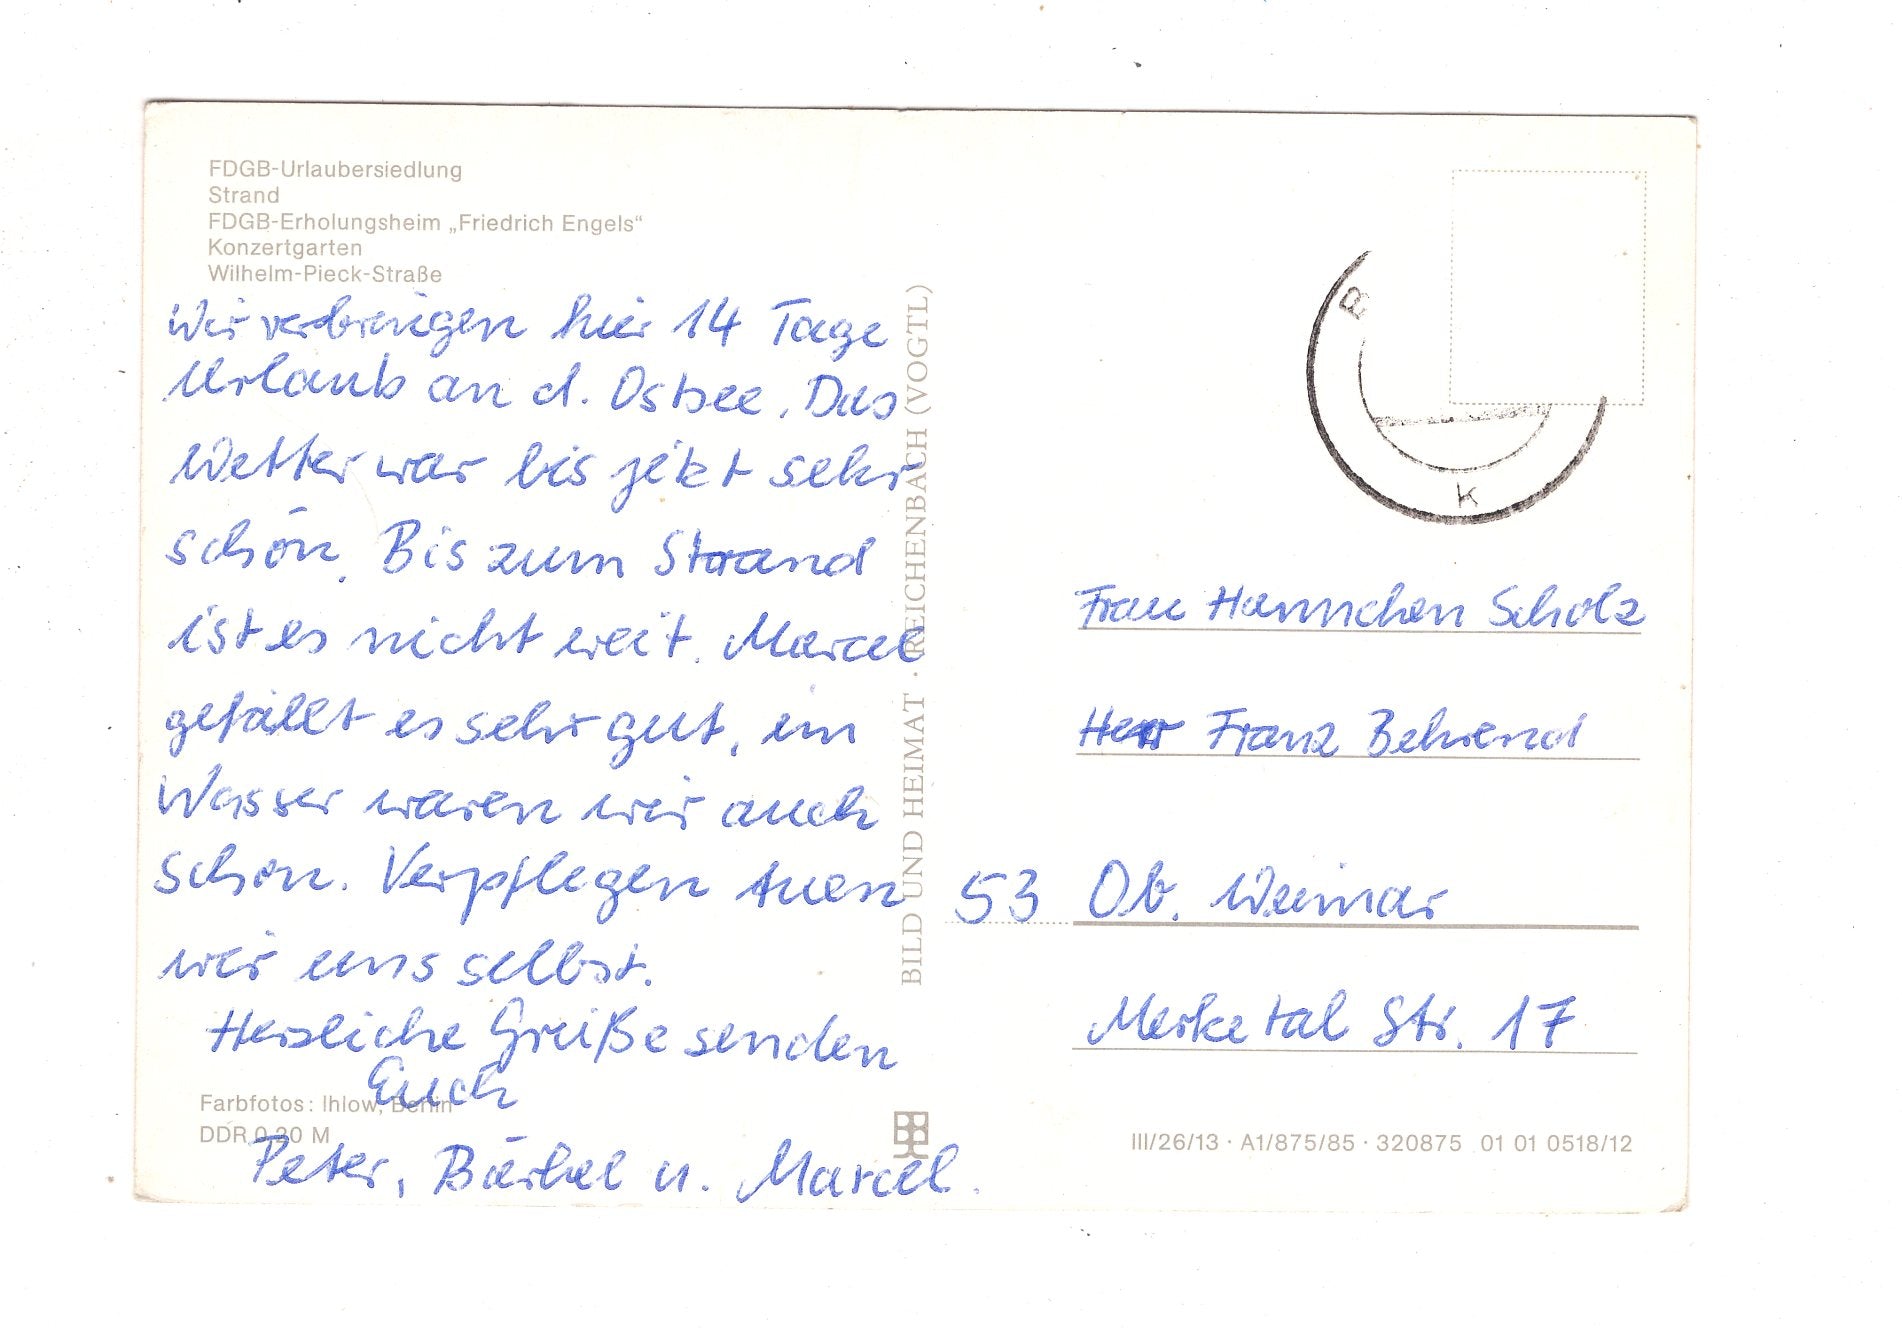 FDGB-Urlaubersiedlung
Strand
FDGB-Erholungsheim „Friedrich Engels“
Konzertgarten
Wilhelm-Pieck-Straße
Wir verbringen hier 14 Tage
Urlaub an d. Ostsee. Das
Wetter war bis jetzt sehr
schön. Bis zum Strand
ist es nicht weit. Marcel
gefällt es sehr gut, im
Wasser waren wir auch
schon. Verpflegen tuen
wir uns selbst.
Herzliche Grüße senden
Euch
Peter, Bärbel u. Marcel.
Farbfotos: Ihlow, Berlin
DDR 0,20 M
BILD UND HEIMAT · REICHENBACH (VOGTL)
B
k
Frau Hannchen Scholz
Herr Franz Behrend
53 Ob. Weimar
Merketal Str. 17
III/26/13 · A1/875/85 · 320875 01 01 0518/12